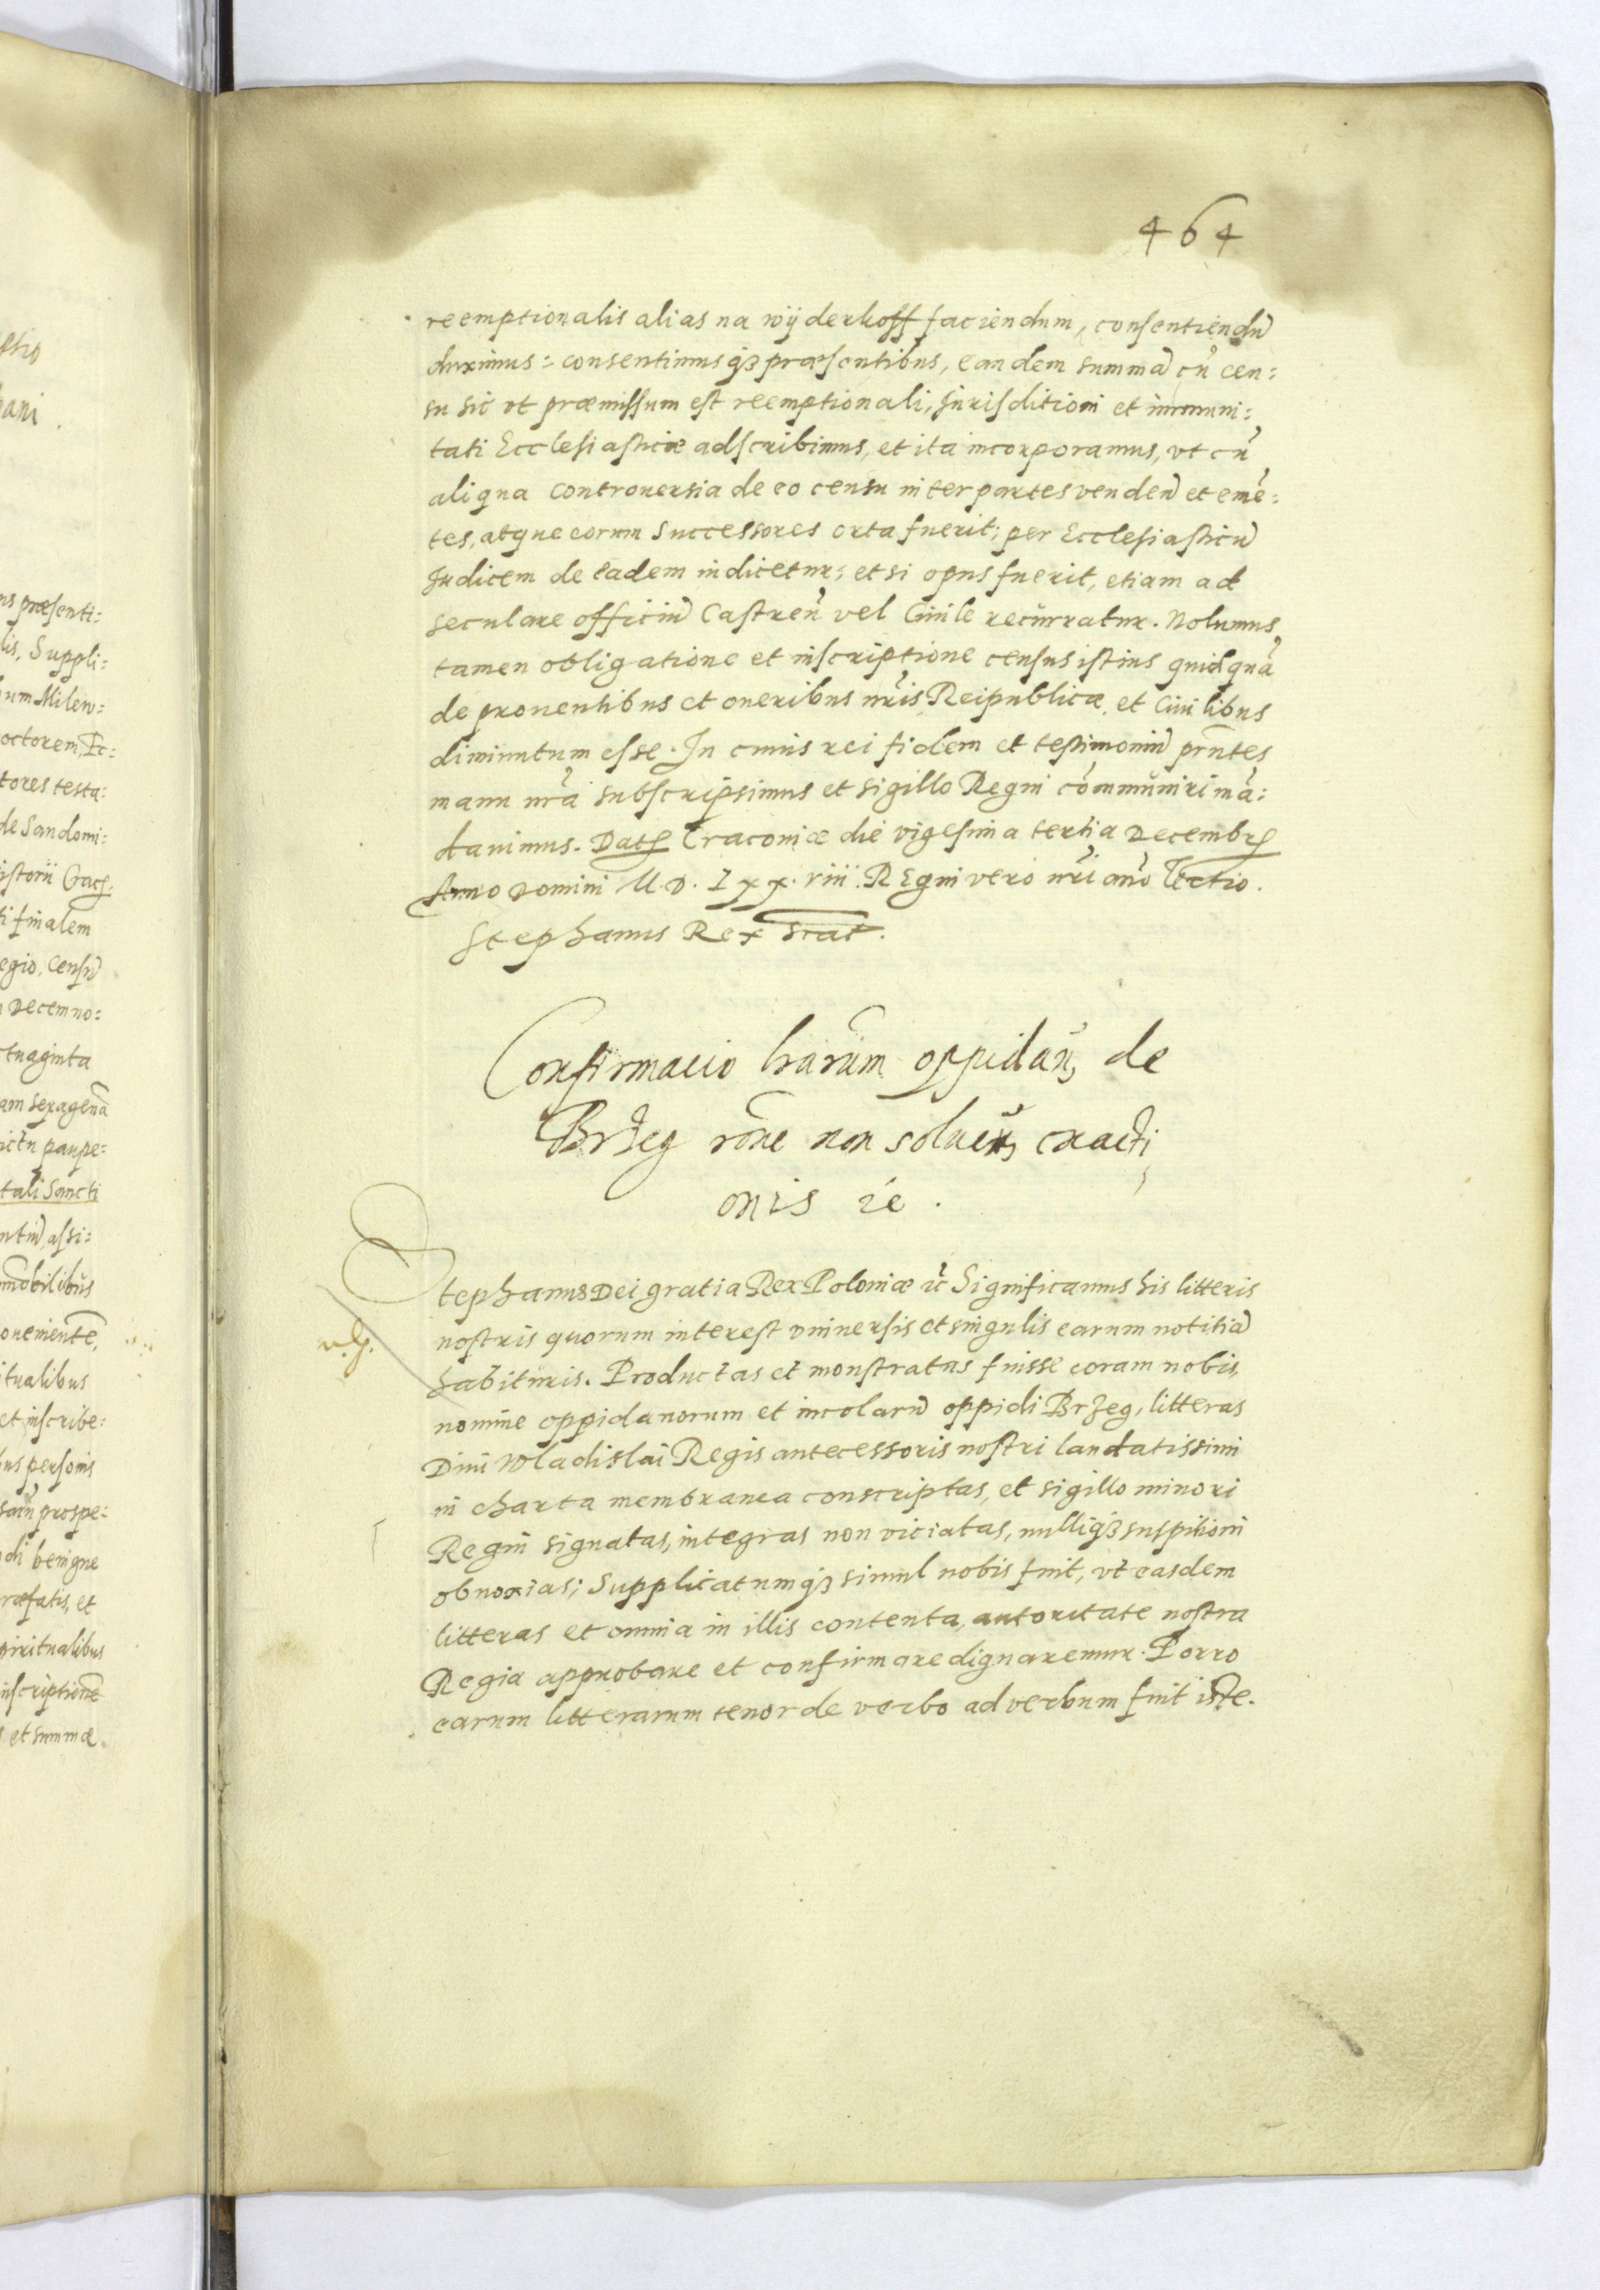 464
reemptionalis alias na wijderkoff faciendum, consentiendũ
duximus: consentimusq3 præsentibus, eandem summã cũ cen:
su sic vt præmissum est reemptionali, Jurisditioni et immuni:
tati Ecclesiasticæ adscribimus, et ita incorporamus, vt cũ
aliqua controuersia de eo censu inter partes vendeñ et emẽ:
tes, atque eorum Successores orta fuerit; per Ecclesiasticũ
Judicem de eadem iudicetur; et si opus fuerit, etiam ad
seculare officiũ Castreñ vel Ciuile recurratur. Nolumus
tamen obligatione et inscriptione census istius quidquã
de prouentibus et oneribus nr̃is Reipublicæ et Ciuilibus
diminutum esse. In cuius rei fidem et testimoniũ pr̃ntes
manu nr̃a subscripsimus et sigillo Regni cõmuniri mã:
dauimus. Dat Cracouiæ die vigesima tertia Decembr
Anno Domini M.D.Lxx.viii. Regni vero nr̃i año Tertio.
Stephanus Rex scat.
Confirmacio lrarũm oppidañ de
Brzeg rõne non soluen exacti
onis rc.
Stephanus Dei gratia Rex Poloniæ rc̃ Significamus his litteris
nostris quorum interest vniuersis et singulis earum notitiã
habituris. Productas et monstratas fuisse coram nobis,
v. g.
nomine oppidanorum et incolarũ oppidi Brzeg, litteras
Diui Wladislai Regis antecessoris nostri laudatissimi
in charta membranea conscriptas, et sigillo minori
Regni signatas, integras non viciatas, nulliq3 suspitioni
obnoxias; Supplicatumq3 simul nobis fuit, vt easdem
litteras et omnia in illis contenta, autoritate nostra
Regia approbare et confirmare dignaremur. Porro
earum litterarum tenor de verbo ad verbum fuit iste.